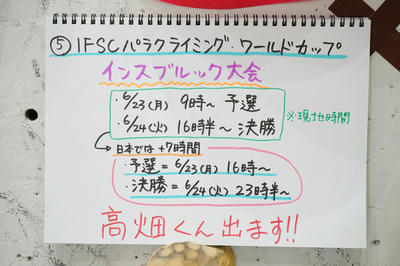 ⑤ IFSCパラクライミング ワールドカップ
インスブルック大会
・6/23(月) 9時~ 予選
・6/24(火) 16時半~ 決勝
※現地時間
日本では +7時間
・予選=6/23(月) 16時~
・決勝=6/24(火) 23時半~
高畑くん出ます!!